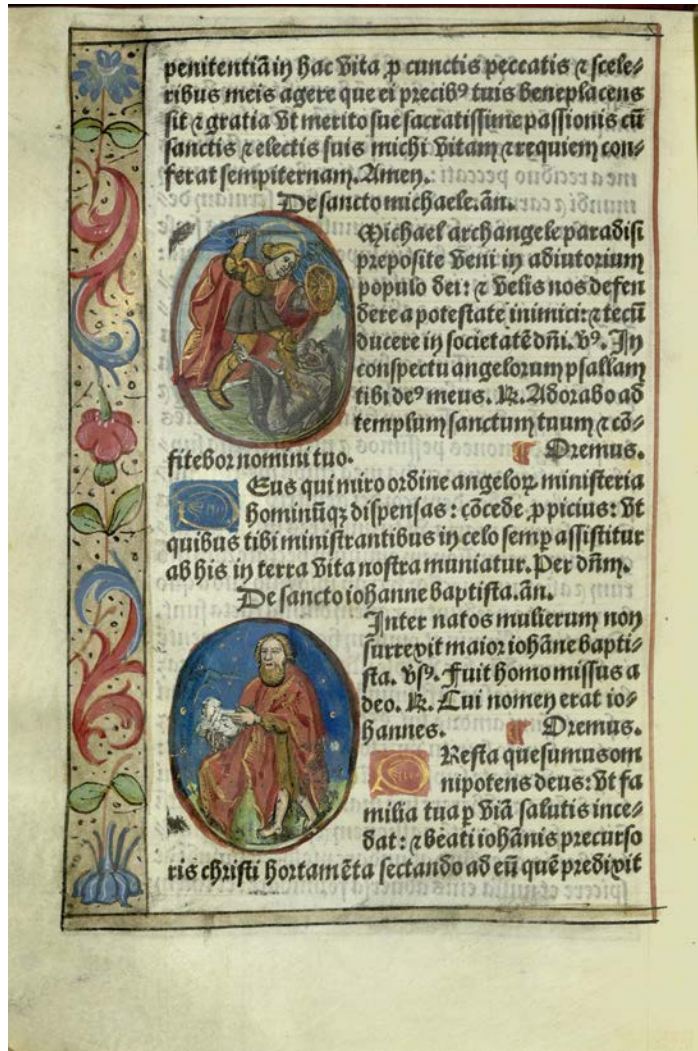 penitentiā in hac vita ꝑ cunctis peccatis ⁊ scele⸗
ribus meis agere que ei precibꝰ tuis beneplacens
sit ⁊ gratia vt merito sue sacratissime passionis cū
sanctis ⁊ electis suis michi vitam ⁊ requiem con⸗
ferat sempiternam. Amen.
De sancto michaele. añ.
Michael archangele paradisi
preposite veni in adiutorium
populo dei: ⁊ velis nos defen
dere a potestate inimici: ⁊ tecū
ducere in societatē dñi. vꝰ. In
conspectu angelorum psallam
tibi deꝰ meus. ℟. Adorabo ad
templum sanctum tuum ⁊ cō⸗
fitebor nomini tuo. ¶ Oremus.
DEus qui miro ordine angeloꝝ ministeria
hominūqꝫ dispensas: cōcede ꝓpicius: vt
quibus tibi ministrantibus in celo semꝑ assistitur
ab his in terra vita nostra muniatur. Per dñm.
De sancto iohanne baptista. añ.
Inter natos mulierum non
surrexit maior iohāne bapti⸗
sta. vsꝰ. Fuit homo missus a
deo. ℟. Cui nomen erat io⸗
hannes. ¶ Oremus.
PResta quesumus om
nipotens deus: vt fa
milia tua ꝑ viā salutis ince⸗
dat: ⁊ beati iohānis precurso
ris christi hortamēta sectando ad eū quē predixit